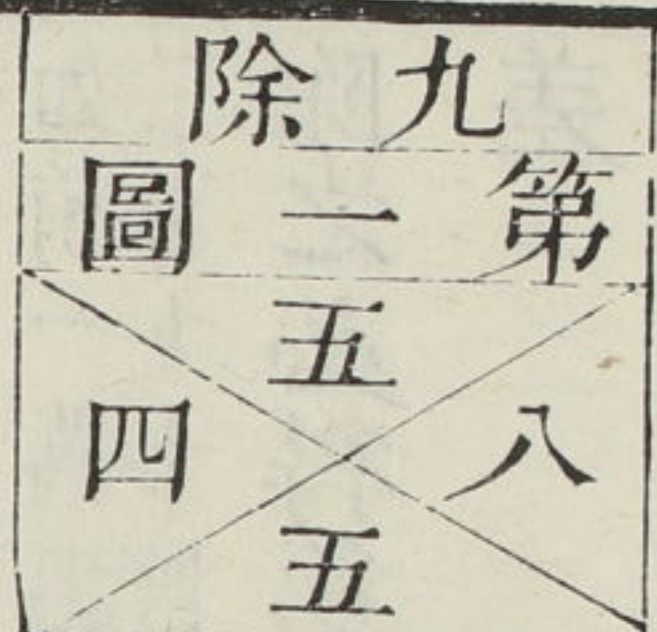 九除
第一圖
五
八 四
五